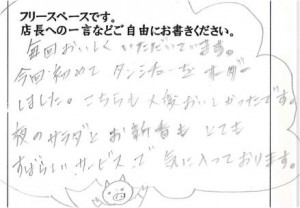 フリースペースです。
店長への一言などご自由にお書きください。
毎回おいしくいただいています。
今回初めてタンシチューをオーダー
しました。こちらも大変おいしかったです。
夜のサラダとお新香もとても
すばらしいサービスで気に入っております。